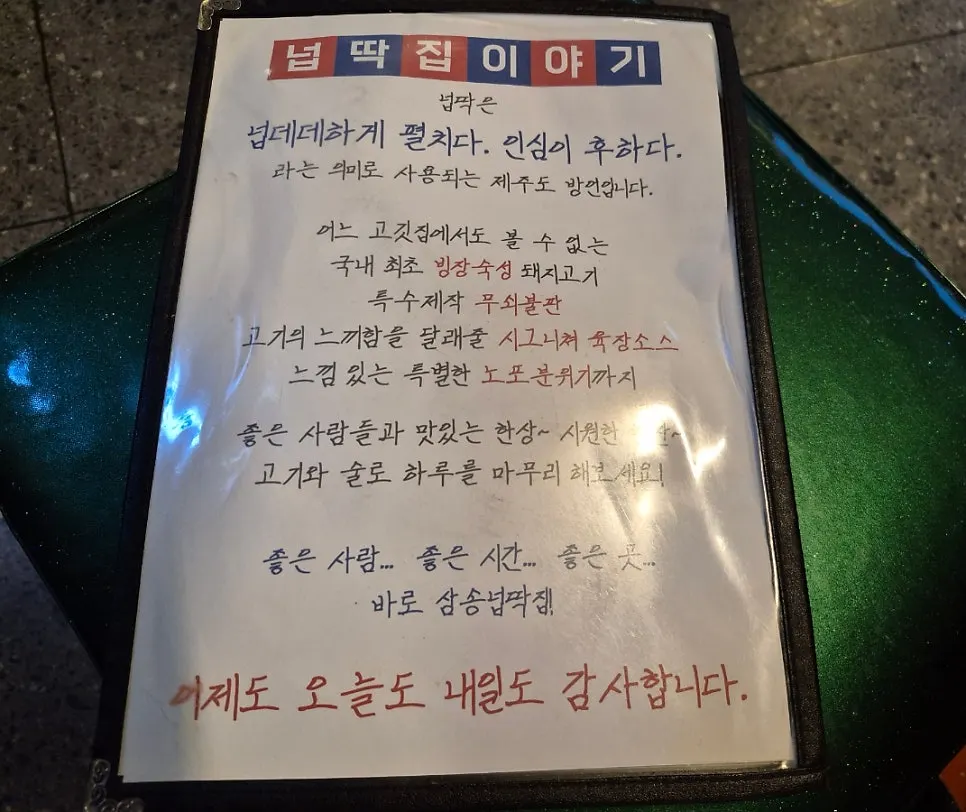 넙딱집이야기
넙딱은
넙데데하게 펼치다. 인심이 후하다.
라는 의미로 사용되는 제주도 방언입니다.
어느 고깃집에서도 볼 수 없는
국내 최초 빙장숙성 돼지고기
특수제작 무쇠불판
고기의 느끼함을 달래줄 시그니쳐 육장소스
느낌 있는 특별한 노포분위기까지
좋은 사람들과 맛있는 한상~ 시원한
고기와 술로 하루를 마무리 해보세요!
좋은 사람... 좋은 시간... 좋은 곳...
바로 삼송넙딱집!
어제도 오늘도 내일도 감사합니다.